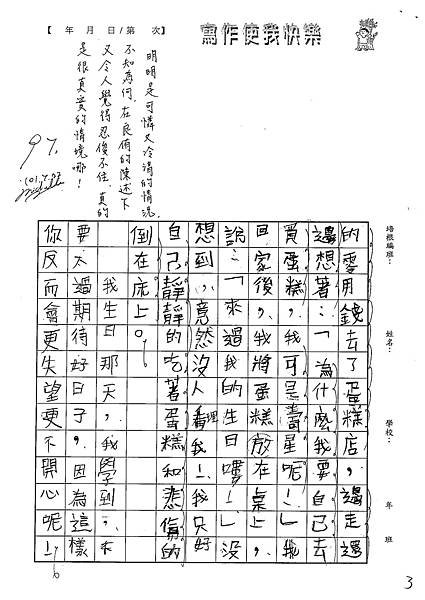 寫作使我快樂
【　年　月　日/第　次】
明明是可憐又冷清的情況
不知為何，在良侑的陳述下
又令人覺得忍俊不住，真的
是很真實的情境哪！
97.
培根編班：
姓名：
學校：
年　班
的零用錢去了蛋糕店，邊走還
邊想著：「為什麼我要自己去
買蛋糕，可是壽星呢！」我
回家後，我將蛋糕放在桌上，
說：「來過我的生日嘍！」沒
想到，竟然沒人理我！我只好
自己靜靜的吃著蛋糕和悲傷的
倒在床上。
我生日那天，我學到，不
要太過期待好日子，因為這樣
你反而會更失望更不開心呢！
3